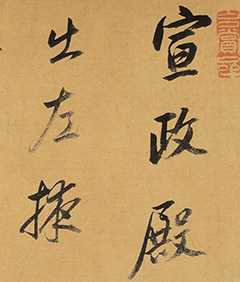 宣政殿
出左掖